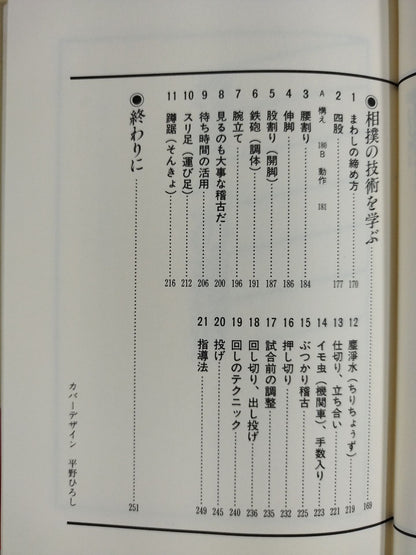 ◉相撲の技術を学ぶ 169
1 まわしの締め方 170
2 四股 177
A 構え 180 B 動作 181
3 腰割り 184
4 伸脚 186
5 股割り（開脚） 187
6 鉄砲（調体） 191
7 腕立て 196
8 見るのも大事な稽古だ 200
9 待ち時間の活用 206
10 スリ足（運び足） 212
11 蹲踞（そんきょ） 216
12 塵浄水（ちりちょうず） 219
13 仕切り、立ち合い 221
14 イモ虫（機関車）、手数入り 223
15 ぶつかり稽古 225
16 押し切り 232
17 試合前の調整 235
18 回し切り、出し投げ 236
19 回しのテクニック 240
20 投げ 245
21 指導法 249
◉終わりに 251
カバーデザイン 平野ひろし